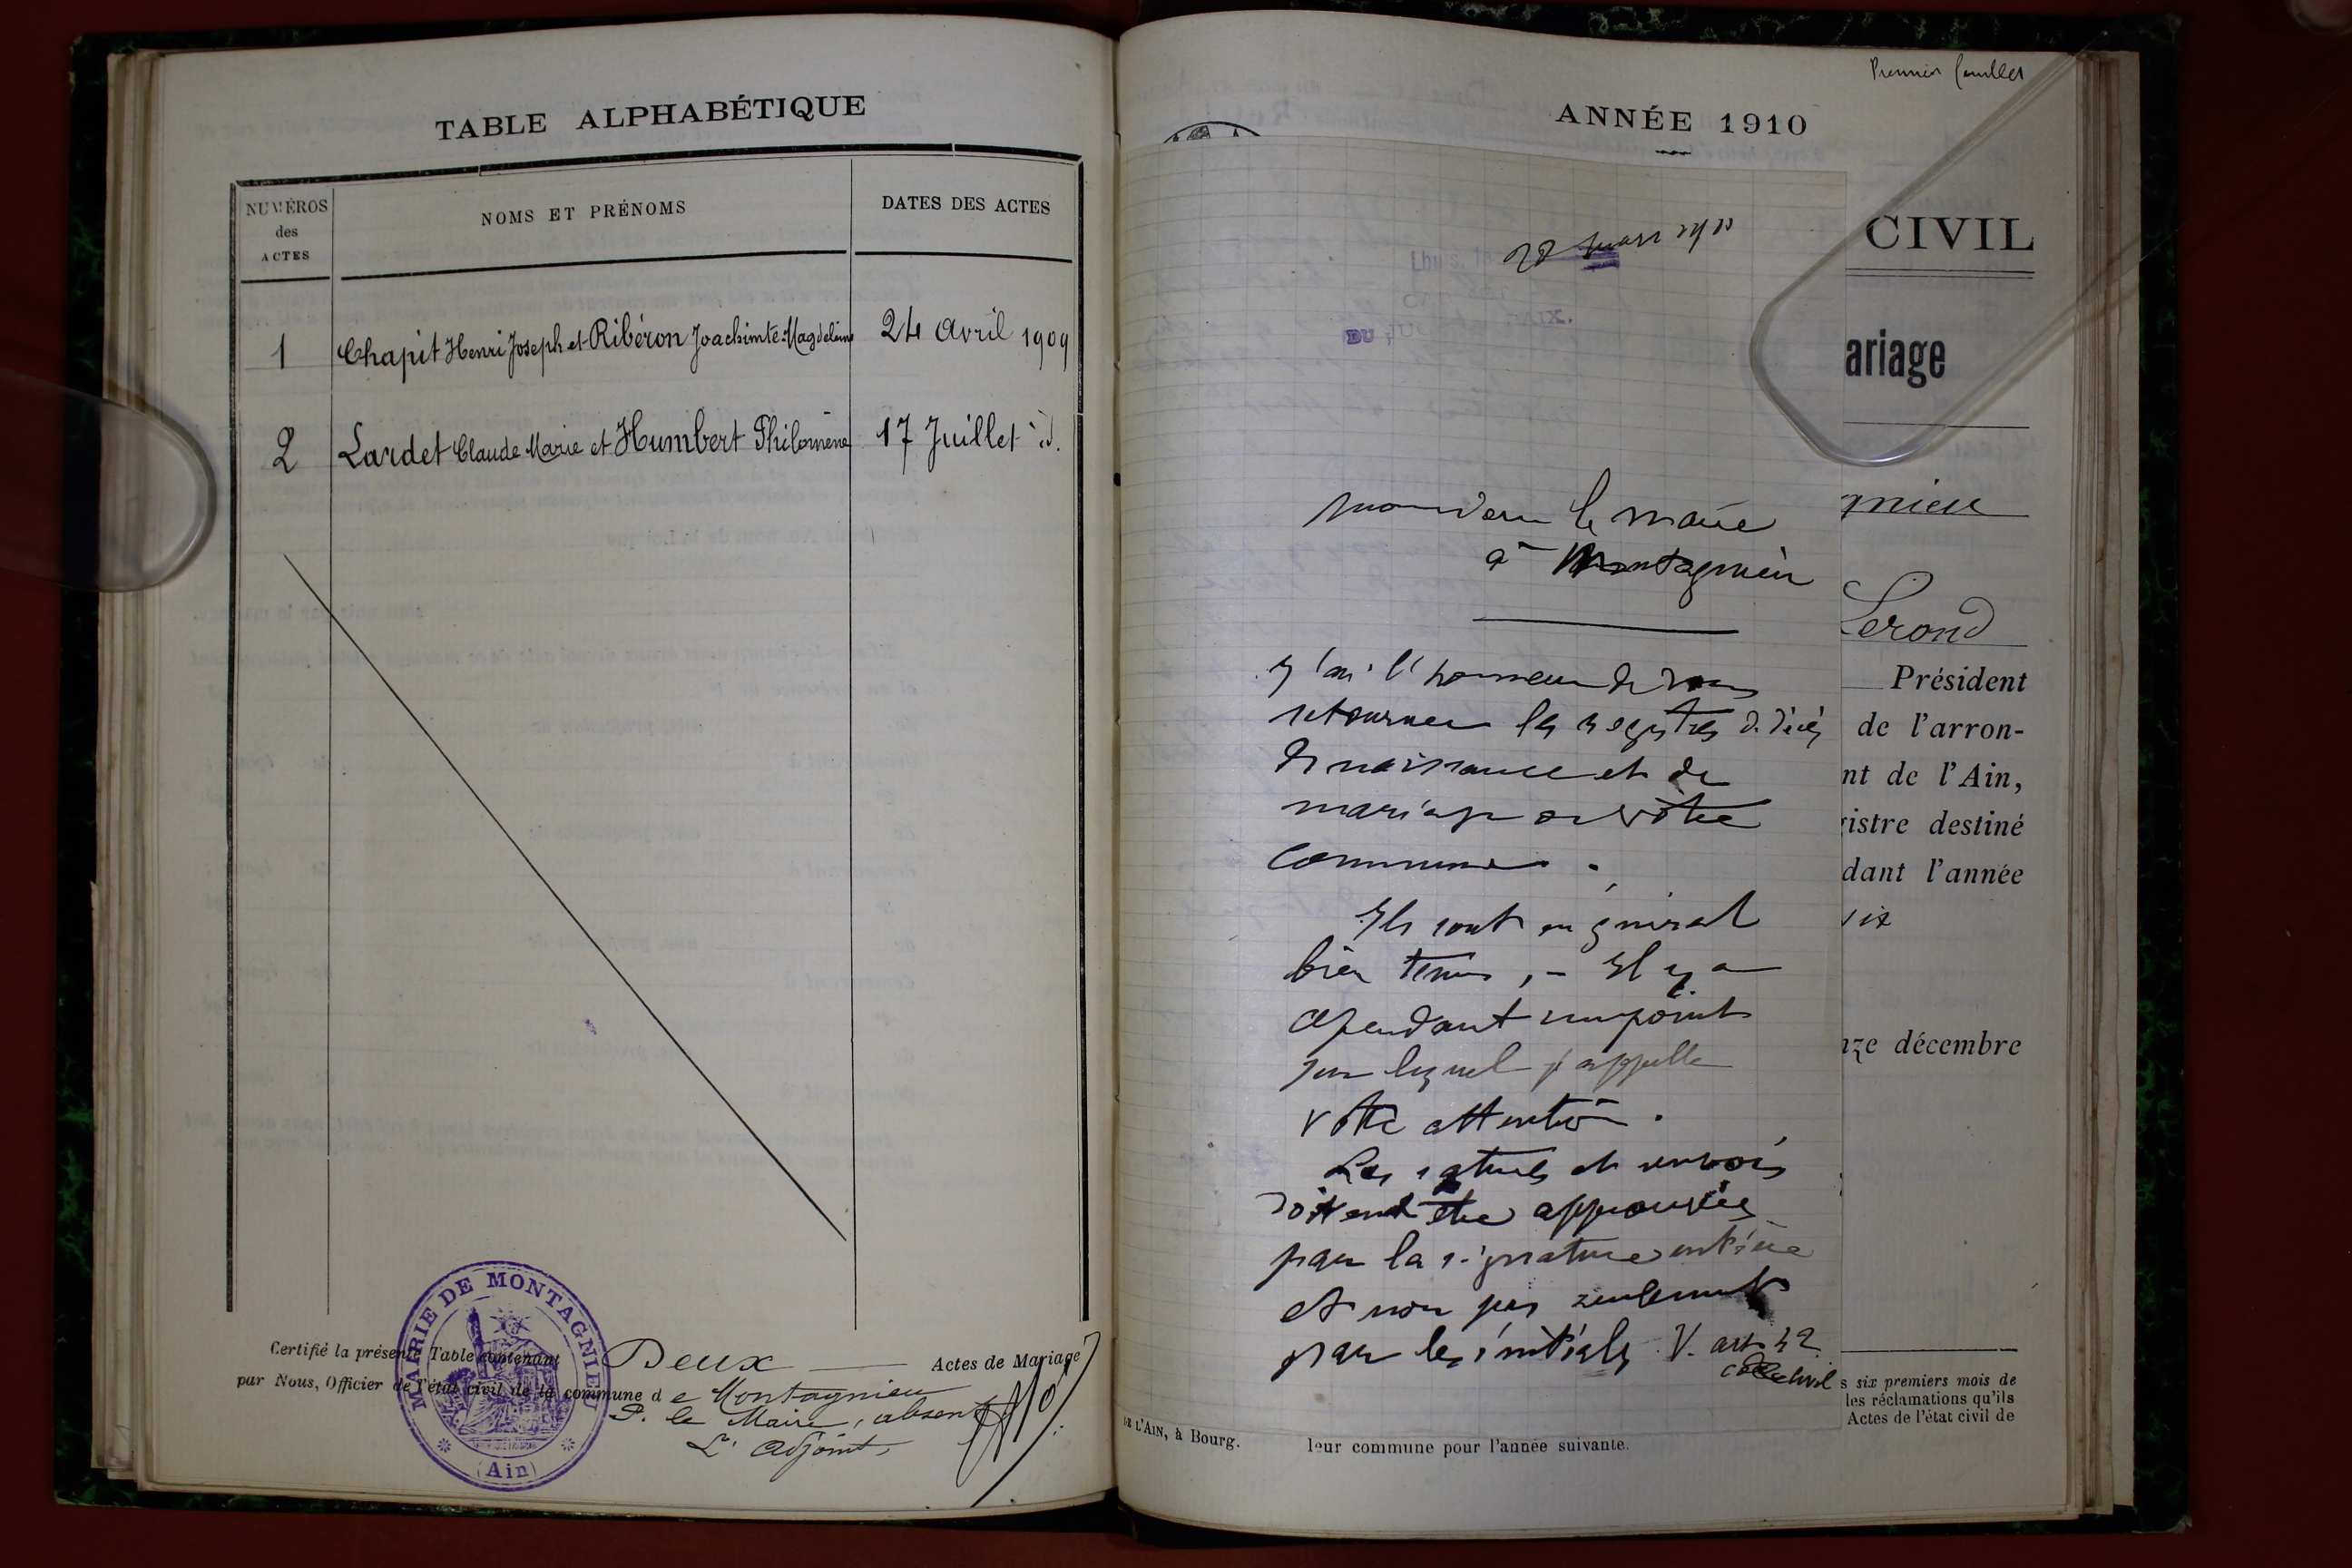 TABLE ALPHABÉTIQUE
NUMÉROS
des
ACTES
NOMS ET PRÉNOMS
DATES DES ACTES
1 Chapit Henri Joseph et Ribéron Joachimte Magdeleine 24 avril 1909
2 Lardet Claude Marie et Humbert Philomène 17 Juillet id.
Certifié la présente Table contenant Deux Actes de Mariage
par Nous, Officier de l'état civil de la commune de Montagnieu
P. le Maire, absent
L'adjoint,
MAIRIE DE MONTAGNIEU
(Ain)
Premier feuillet
ANNÉE 1910
28 mars
DU
CIVIL
ariage
gnieu
Lerond
Président
de l'arron-
nt de l'Ain,
istre destiné
dant l'année
dix
nze décembre
s six premiers mois de
les réclamations qu'ils
Actes de l'état civil de
leur commune pour l'année suivante.
DE L'AIN, à Bourg.
Monsieur le maire
à Montagnieu
J'ai l'honneur de vous
retourner les registres de décès
de naissance et de
mariage de votre
commune.
Ils sont en général
bien tenus, - Il y a
cependant un point
sur lequel j'appelle
votre attention.
Les ratures et renvois
doivent être approuvés
par la signature entière
et non pas seulement
par les initiales V. art 42
code civil